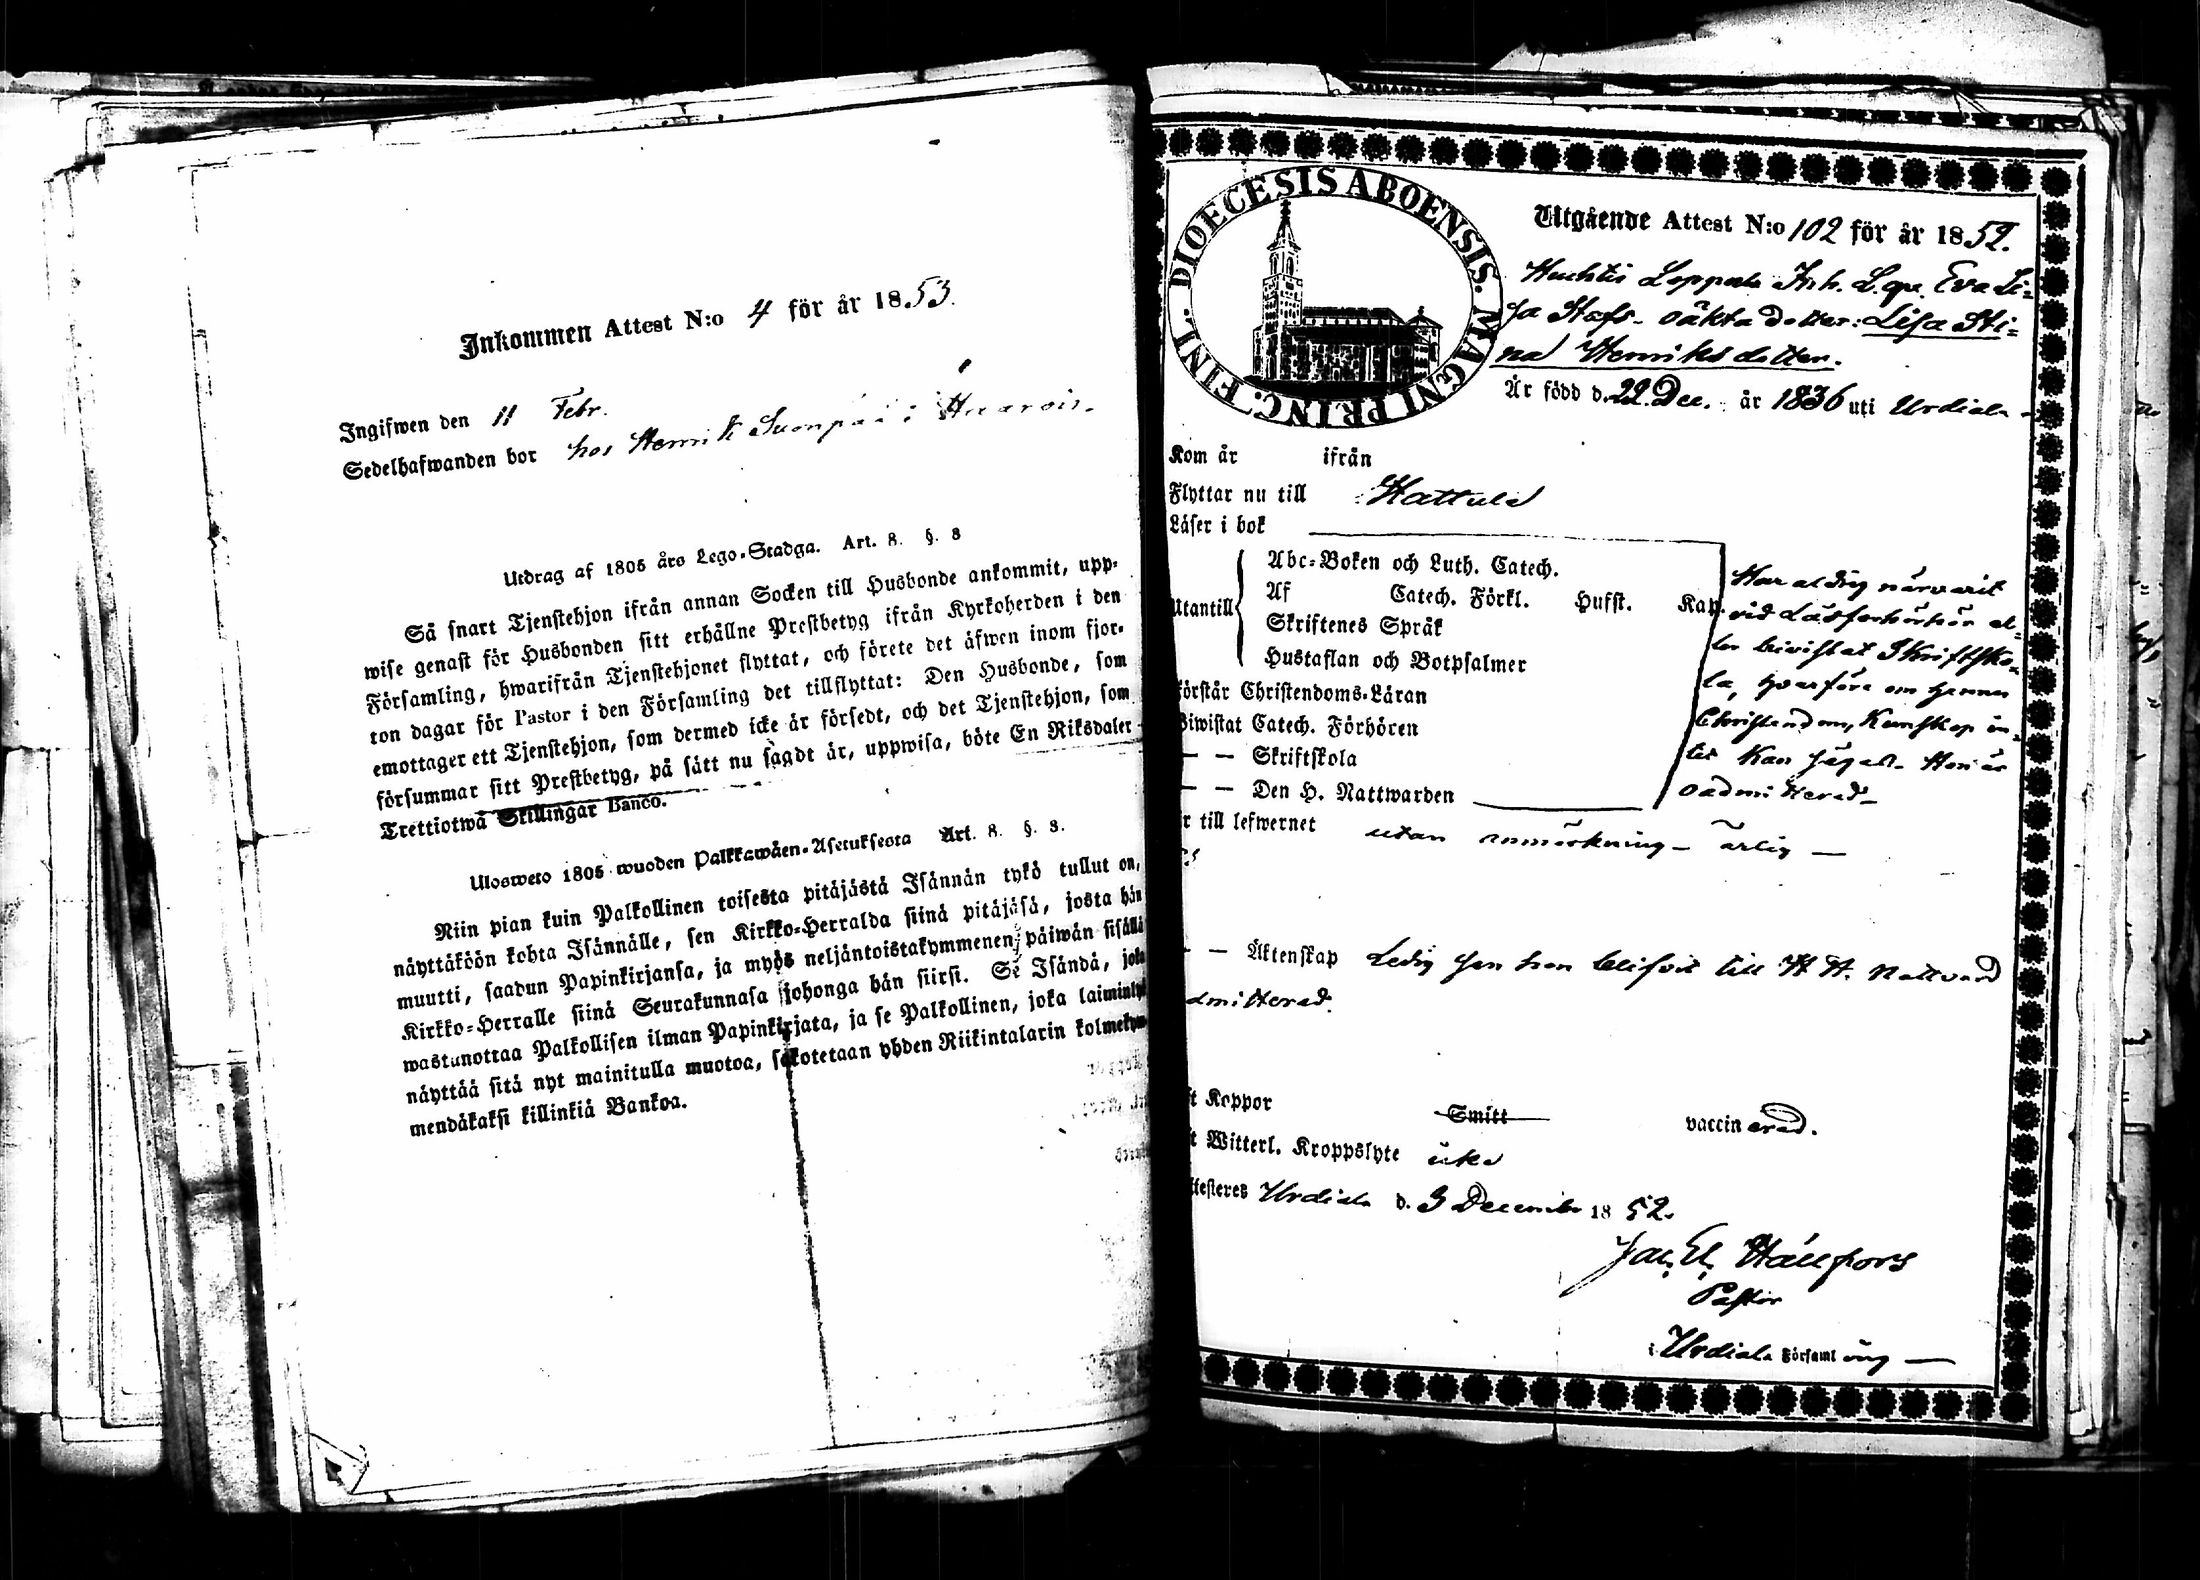 Inkommen Attest N:o 4 för år 1853.
Ingifwen den 11 Febr.
Sedelhafwanden bor hos Henrik Suonpää i
Utdrag af 1805 års Lego-Stadga. Art. 8. §. 8
Så snart Tjenstehjon ifrån annan Socken till Husbonde ankommit, upp-
wise genast för Husbonden sitt erhållne Prestbetyg ifrån Kyrkoherden i den
Församling, hwarifrån Tjenstehjonet flyttat, och förete det äfwen inom fjor-
ton dagar för Pastor i den Församling det tillflyttat: Den Husbonde, som
emottager ett Tjenstehjon, som dermed icke är försedt, och det Tjenstehjon, som
försummar sitt Prestbetyg, på sätt nu sagdt är, uppwisa, böte En Riksdaler
Trettiotwå Skillingar Banco.
Ulosweto 1805 wuoden Palkkawäen-Asetuksesta Art. 8. §. 8.
Niin pian kuin Palkollinen toisesta pitäjästä Isännän tykö tullut on,
näyttäköön kohta Isännälle, sen Kirkko-Herralda siinä pitäjäsä, josta hän
muutti, saadun Papinkirjansa, ja myös neljäntoistakymmenen päiwän sisällä
Kirkko-Herralle siinä Seurakunnasa johonga hän siirsi. Se Isändä, joka
wastanottaa Palkollisen ilman Papinkirjata, ja se Palkollinen, joka laiminlyö
näyttää sitä nyt mainitulla muotoa, sakotetaan yhden Riikintalarin kolmekym-
mendäkaksi killinkiä Bankoa.
DIOECESIS ABOENSIS. MAGNI PRINC. FINL.
Utgående Attest N:o 102 för år 1852.
Huhtis Inh. Eva Li-
sa oäkta dotter: Lisa Sti-
na Henriksdotter.
Är född d. 22. Dec. år 1836 uti Urdiala
Kom år ifrån
Flyttar nu till Hattula
Läser i bok
Utantill
Abc-Boken och Luth. Catech.
Af Catech. Förkl. Husst. Kap.
Skriftenes Språk
Hustaflan och Botpsalmer
Förstår Christendoms-Läran
Biwistat Catech. Förhören
— — Skriftskola
— — Den H. Nattwarden
Har aldrig närvarit
vid Läsförhören el-
ler bivistat Skriftsko-
la, hvarföre om hennes
Christendoms Kunskap in-
tet kan sägas. Hon är
oadmitterad
är till lefwernet utan anmärkning — ärlig —
— — Äktenskap Ledig sen hon blifvit till H. H. Nattvard
admitterad.
Koppor Smitt vaccinerad.
Witterl. Kroppslyte icke
Attesteres Urdiala d. 3 December 1852.
Pastor
i Urdiala Församling —